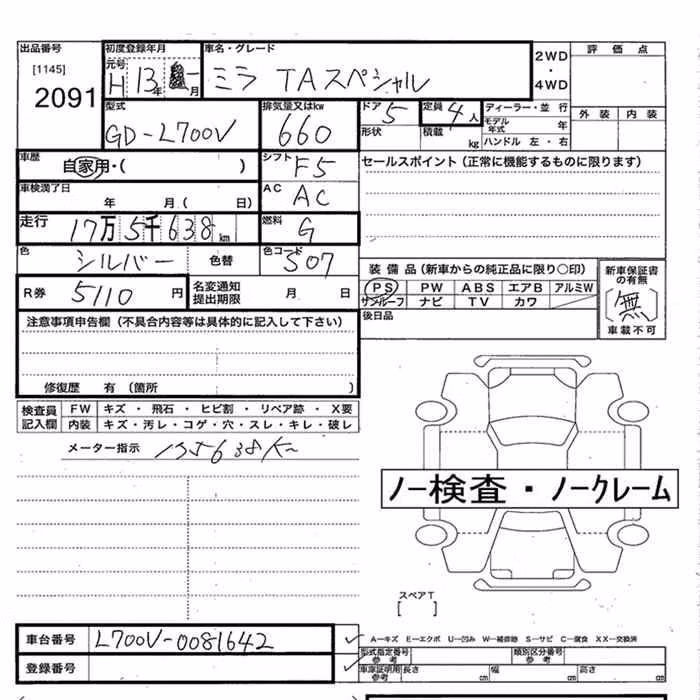 出品番号 初度登録年月 車名・グレード 2WD・4WD 評価点
[1145] 元号 H 13年 一月 ミラ TAスペシャル
2091
型式 排気量又はkw ドア 5 定員 4人 ディーラー・並行 外装 内装
GD-L700V 660 形状 積載 kg モデル年式 年
ハンドル 左・右
車歴 自家用・( ) シフト F5 セールスポイント (正常に機能するものに限ります)
車検満了日 年 月( 日) AC AC
走行 17万5千638km 燃料 G
色 シルバー 色替 色コード S07
装備品 (新車からの純正品に限り○印) 新車保証書の有無
R券 5110円 名変通知提出期限 月 日 PS PW ABS エアB アルミW [無]
サンルーフ ナビ TV カワ 車載不可
注意事項申告欄 (不具合内容等は具体的に記入して下さい) 後日品
修復歴 有 (箇所 )
検査員記入欄 FW キズ・飛石・ヒビ割・リペア跡・X要
内装 キズ・汚レ・コゲ・穴・スレ・キレ・破レ
メーター指示 175638K
ノー検査・ノークレーム
スペアT
[ ]
車台番号 L700V-0081642 A－キズ E－エクボ U－凹み W－補修跡 S－サビ C－腐食 XX－交換済
登録番号 型式指定番号 参考 類別区分番号 参考
車庫証明用 参考 長さ cm 幅 cm 高さ cm